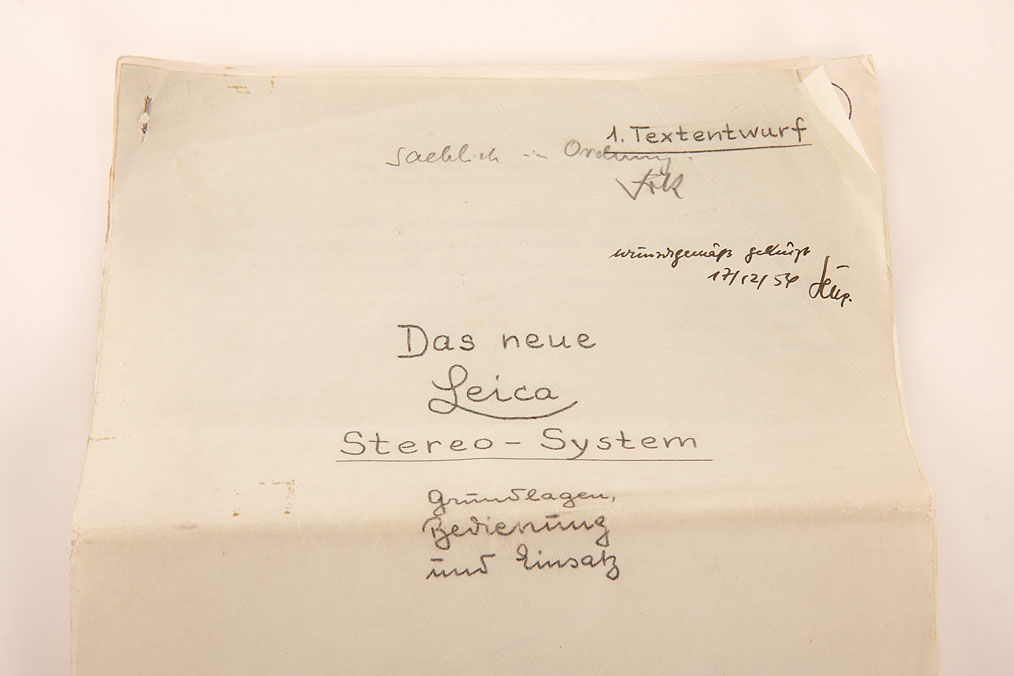 1. Textentwurf
sachlich in Ordnung.
wunschgemäß gekürzt
17/12/54
Das neue
Leica
Stereo-System
Grundlagen,
Bedienung
und Einsatz